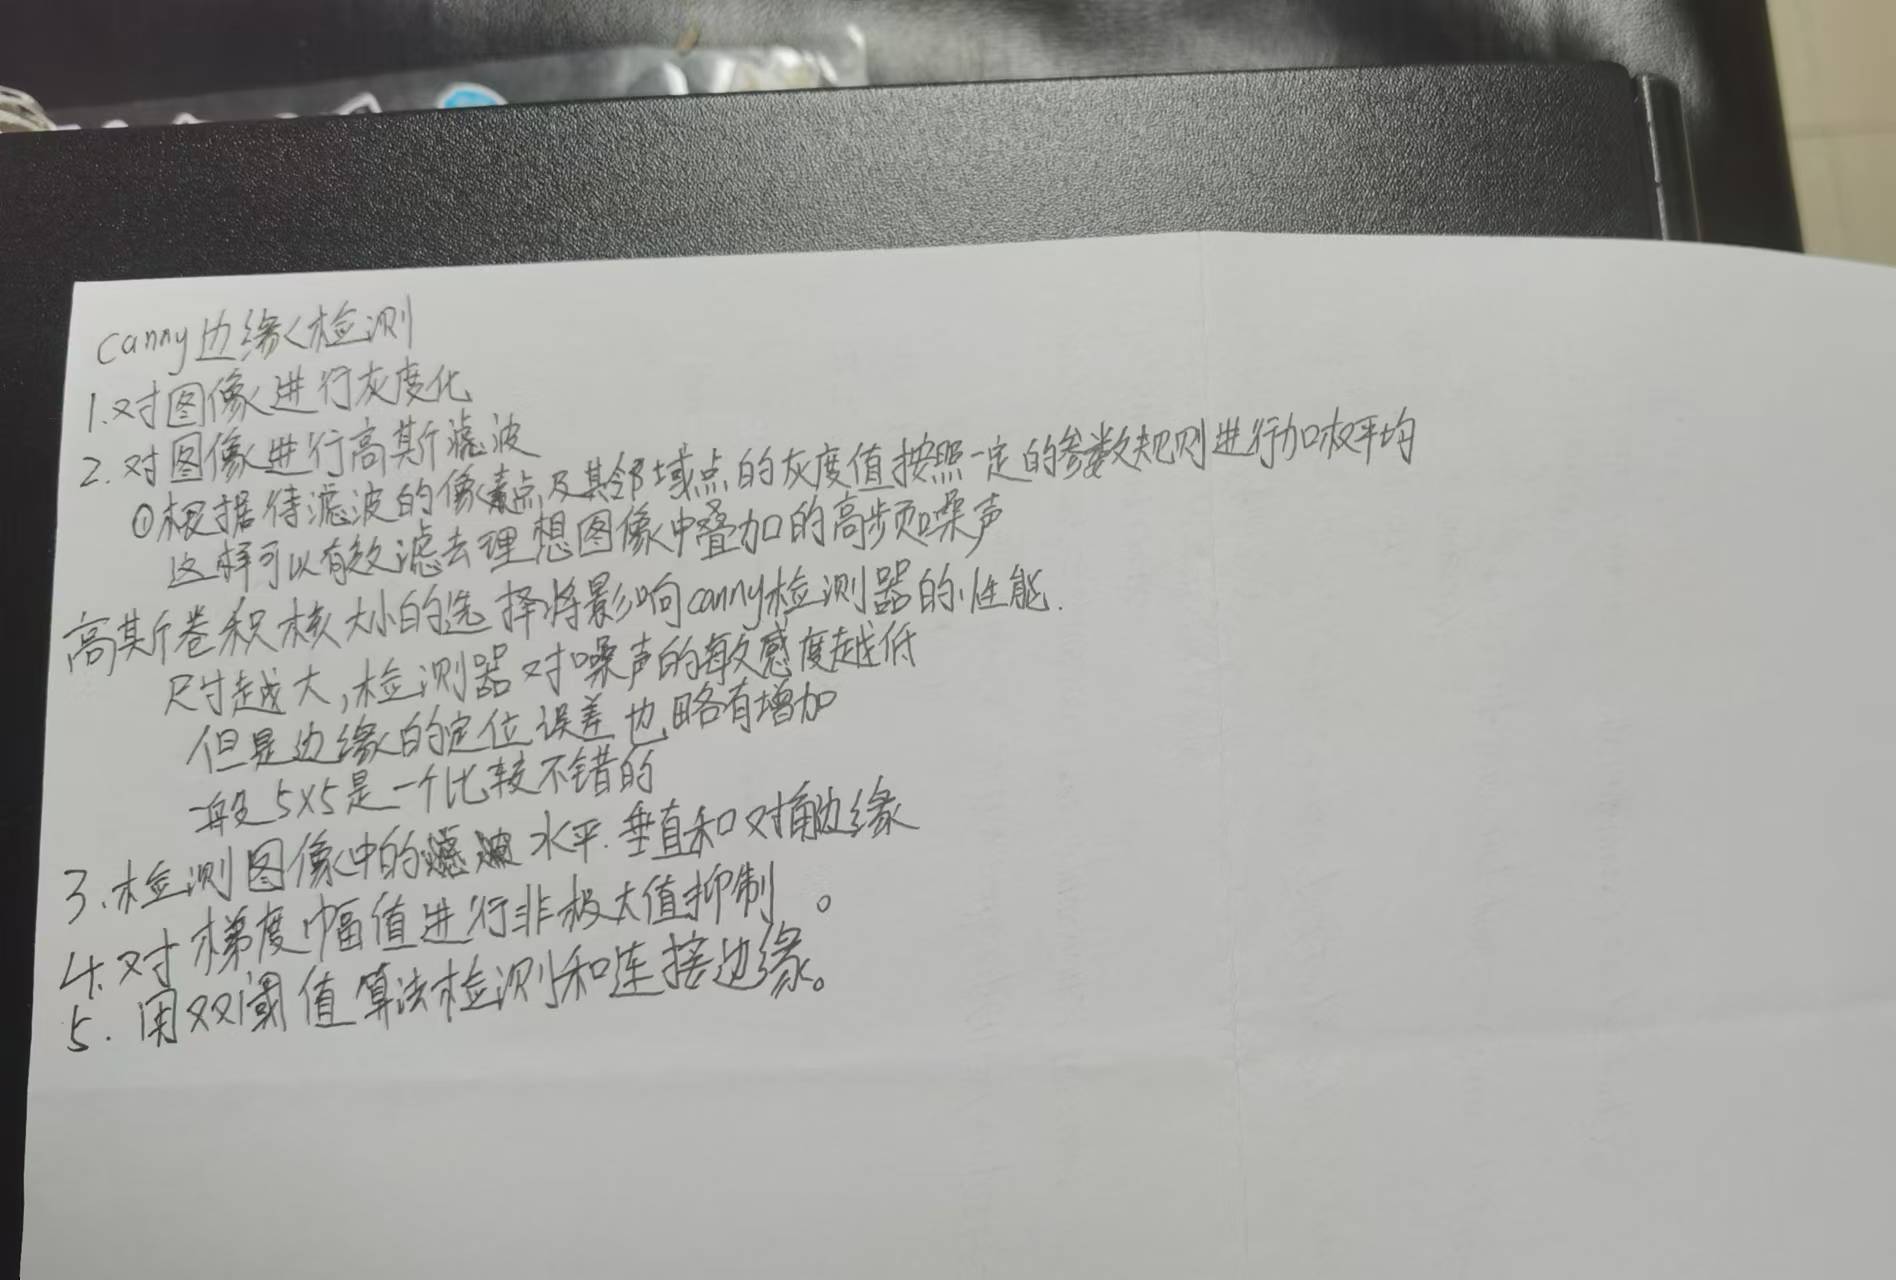 canny边缘检测
1.对图像进行灰度化
2.对图像进行高斯滤波
①根据待滤波的像素点及其邻域点的灰度值按照一定的参数规则进行加权平均
这样可以有效滤去理想图像中叠加的高频噪声
高斯卷积核大小的选择将影响canny检测器的性能.
尺寸越大,检测器对噪声的敏感度越低
但是边缘的定位误差也略有增加
一般5×5是一个比较不错的
3.检测图像中的水平.垂直和对角边缘
4.对梯度幅值进行非极大值抑制。
5.用双阈值算法检测和连接边缘。